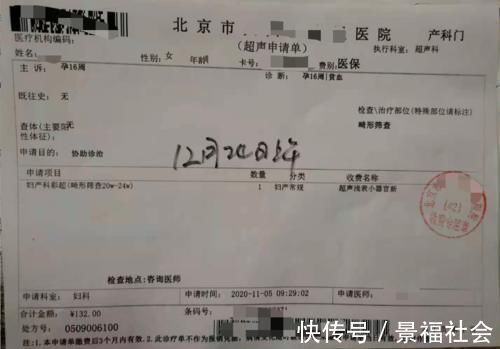 北京市 医院 产科门
医疗机构编码: (超声申请单) 执行科室: 超声科
姓 性别: 女 年龄 卡号: 费别: 医保
主 诉: 孕16周 诊 断: 孕16周|贫血
既往史: 无
检查\治疗部位(特殊部位请标注)
查体(主要阳 无 畸形筛查
性体征):
申请目的: 协助诊治
12月24日上午
申请项目 数量 分类 收费名称
妇产科彩超(畸形筛查20w-24w) 1 妇产常规 超声浅表小器官新
北京
(02)
检查地点:咨询医师
申请科室: 妇科 申请时间: 2020-11-05 09:29:02 申请医师:
合计金额: ¥132.00 条码号:
处方号: 0509006100
注:1.本申请单缴费后3个月内有效. 2.此诊疗单不作为报销凭据,
快传号 / 景福社会